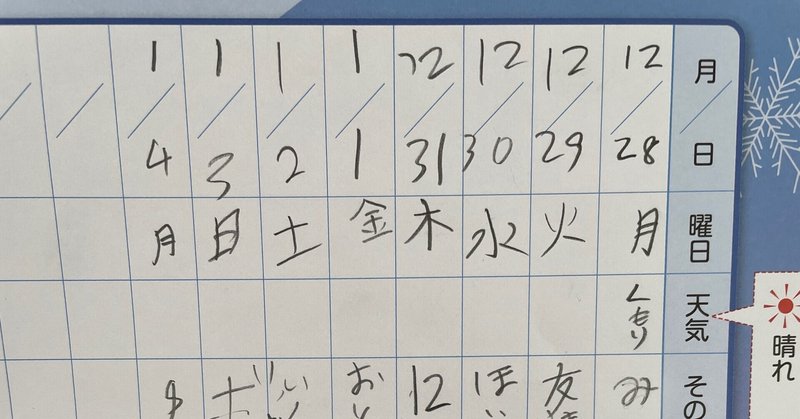 月/日 12/28 12/29 12/30 12/31 1/1 1/2 1/3 1/4
曜日 月 火 水 木 金 土 日 月
天気 くもり
晴れ
その み 友 ほ 12 お